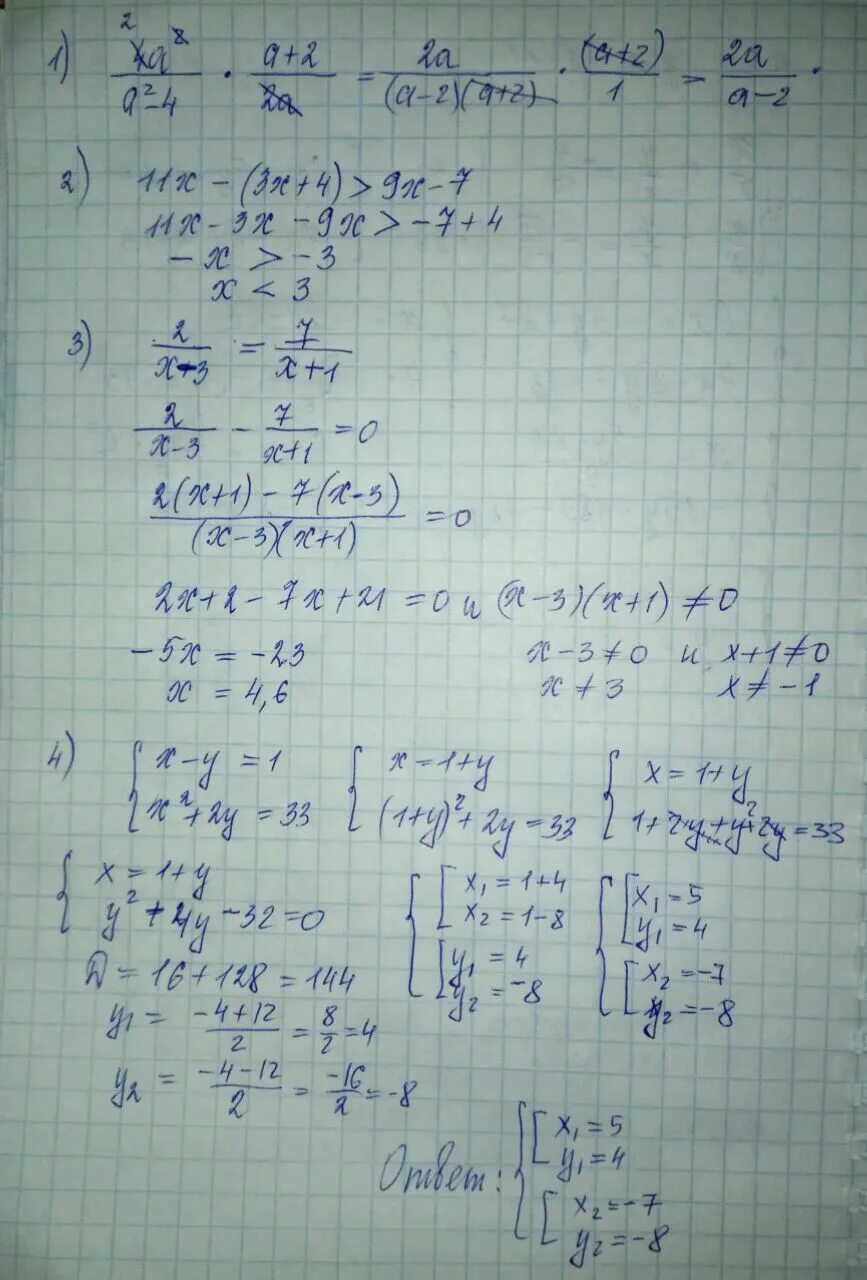 1) 4a² / a²-4 · a+2 / 2a = 2a / (a-2)(a+2) · (a+2) / 1 = 2a / a-2 .
2) 11x - (3x+4) > 9x-7
11x - 3x - 9x > -7+4
-x > -3
x < 3
3) 2 / x-3 = 7 / x+1
2 / x-3 - 7 / x+1 = 0
2(x+1) - 7(x-3) / (x-3)(x+1) = 0
2x+2-7x+21 = 0 и (x-3)(x+1) ≠ 0
-5x = -23 x-3≠0 и x+1≠0
x = 4,6 x ≠ 3 x ≠ -1
4) { x-y = 1 { x = 1+y { x = 1+y
x²+2y = 33 (1+y)²+2y = 33 1+2y+y²+2y = 33
{ x = 1+y { [ x₁ = 1+4 { [ x₁ = 5
y²+4y-32 = 0 x₂ = 1-8 y₁ = 4
D = 16+128 = 144 [ y₁ = 4 [ x₂ = -7
y₁ = -4+12 / 2 = 8 / 2 = 4 y₂ = -8 y₂ = -8
y₂ = -4-12 / 2 = -16 / 2 = -8
Ответ: { [ x₁ = 5
y₁ = 4
[ x₂ = -7
y₂ = -8